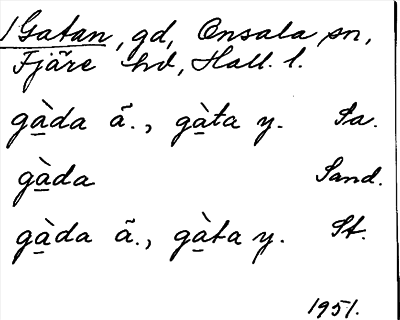 1 Gatan, gd, Onsala sn,
Fjäre hd, Hall. l.
gà̱da ä., gà̱ta y. Sa.
gà̱da Sand.
gà̱da ä., gà̱ta y. St.
1951.